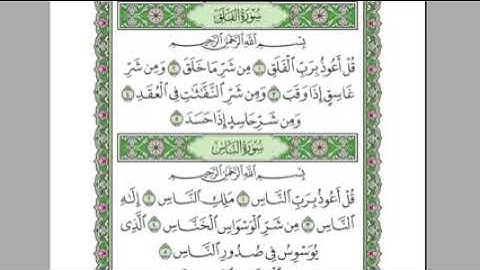 سُورَةُ الفَلَقِ
بِسْمِ ٱللَّهِ ٱلرَّحْمَٰنِ ٱلرَّحِيمِ
قُلْ أَعُوذُ بِرَبِّ ٱلْفَلَقِ ١ مِن شَرِّ مَا خَلَقَ ٢ وَمِن شَرِّ
غَاسِقٍ إِذَا وَقَبَ ٣ وَمِن شَرِّ ٱلنَّفَّٰثَٰتِ فِى ٱلْعُقَدِ ٤
وَمِن شَرِّ حَاسِدٍ إِذَا حَسَدَ ٥
سُورَةُ النَّاسِ
بِسْمِ ٱللَّهِ ٱلرَّحْمَٰنِ ٱلرَّحِيمِ
قُلْ أَعُوذُ بِرَبِّ ٱلنَّاسِ ١ مَلِكِ ٱلنَّاسِ ٢ إِلَٰهِ
ٱلنَّاسِ ٣ مِن شَرِّ ٱلْوَسْوَاسِ ٱلْخَنَّاسِ ٤ ٱلَّذِى
يُوَسْوِسُ فِى صُدُورِ ٱلنَّاسِ ٥